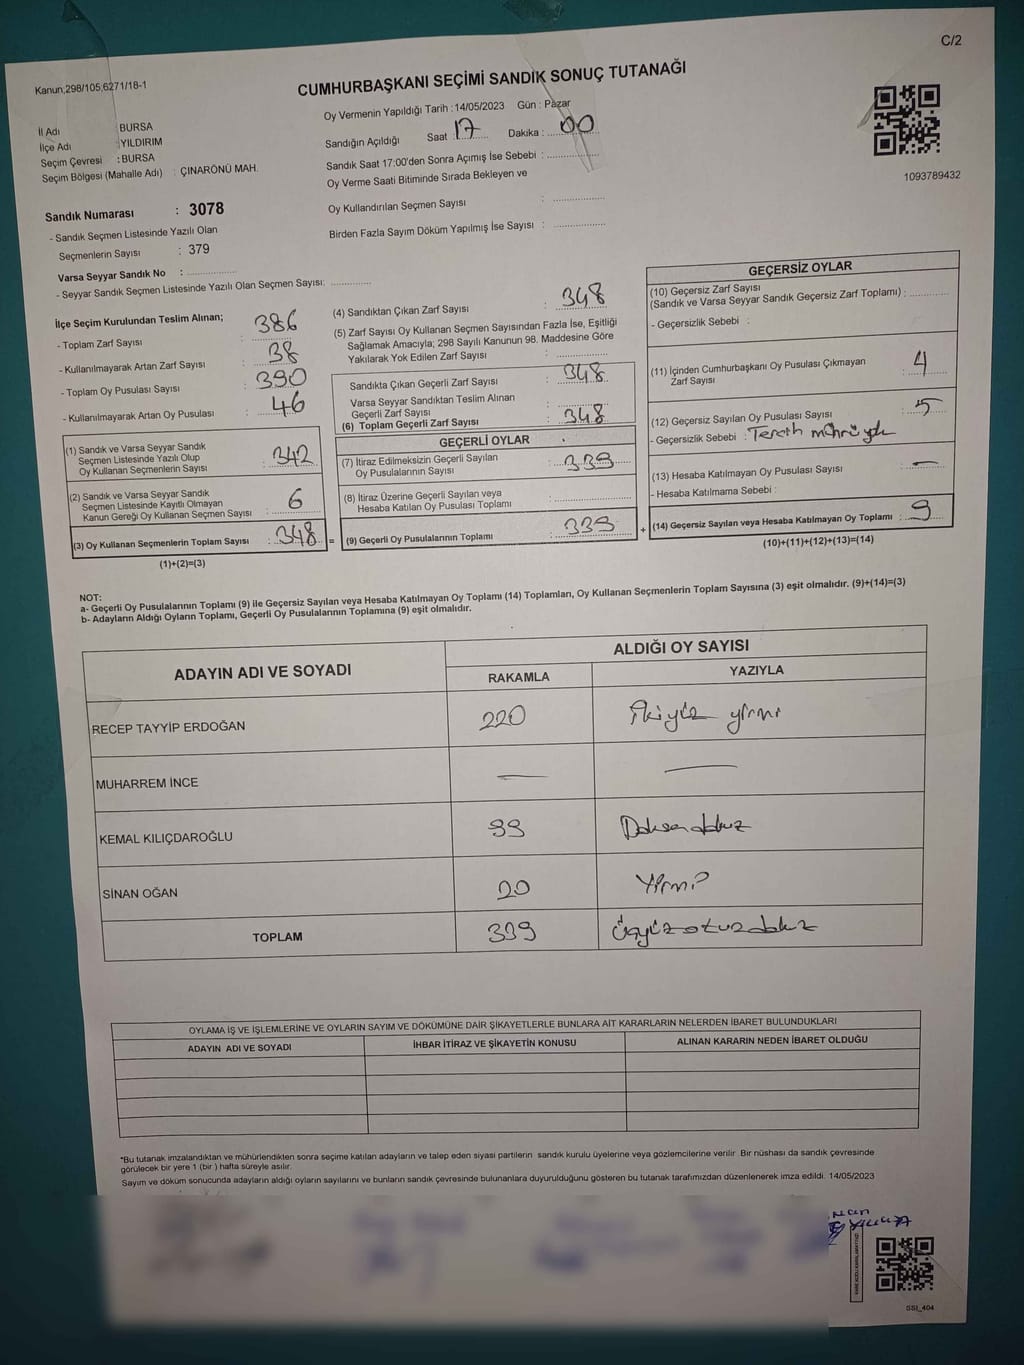 C/2
Kanun,298/105,6271/18-1
CUMHURBAŞKANI SEÇİMİ SANDIK SONUÇ TUTANAĞI
Oy Vermenin Yapıldığı Tarih :14/05/2023 Gün : Pazar
İl Adı : BURSA
İlçe Adı : YILDIRIM
Seçim Çevresi : BURSA
Seçim Bölgesi (Mahalle Adı) : ÇINARÖNÜ MAH.
Sandığın Açıldığı Saat : 17 Dakika : 00
Sandık Saat 17:00'den Sonra Açımış İse Sebebi :
Oy Verme Saati Bitiminde Sırada Bekleyen ve
Oy Kullandırılan Seçmen Sayısı :
Birden Fazla Sayım Döküm Yapılmış İse Sayısı :
1093789432
Sandık Numarası : 3078
- Sandık Seçmen Listesinde Yazılı Olan
Seçmenlerin Sayısı : 379
Varsa Seyyar Sandık No :
- Seyyar Sandık Seçmen Listesinde Yazılı Olan Seçmen Sayısı:
İlçe Seçim Kurulundan Teslim Alınan;
- Toplam Zarf Sayısı : 386
- Kullanılmayarak Artan Zarf Sayısı : 38
- Toplam Oy Pusulası Sayısı : 390
- Kullanılmayarak Artan Oy Pusulası : 46
(1) Sandık ve Varsa Seyyar Sandık
Seçmen Listesinde Yazılı Olup
Oy Kullanan Seçmenlerin Sayısı : 342
(2) Sandık ve Varsa Seyyar Sandık
Seçmen Listesinde Kayıtlı Olmayan
Kanun Gereği Oy Kullanan Seçmen Sayısı : 6
(3) Oy Kullanan Seçmenlerin Toplam Sayısı : 348
(1)+(2)=(3)
(4) Sandıktan Çıkan Zarf Sayısı : 348
(5) Zarf Sayısı Oy Kullanan Seçmen Sayısından Fazla İse, Eşitliği
Sağlamak Amacıyla; 298 Sayılı Kanunun 98. Maddesine Göre
Yakılarak Yok Edilen Zarf Sayısı :
Sandıkta Çıkan Geçerli Zarf Sayısı : 348
Varsa Seyyar Sandıktan Teslim Alınan
Geçerli Zarf Sayısı :
(6) Toplam Geçerli Zarf Sayısı : 348
GEÇERLİ OYLAR
(7) İtiraz Edilmeksizin Geçerli Sayılan
Oy Pusulalarının Sayısı : 339
(8) İtiraz Üzerine Geçerli Sayılan veya
Hesaba Katılan Oy Pusulası Toplamı :
= (9) Geçerli Oy Pusulalarının Toplamı : 339
GEÇERSİZ OYLAR
(10) Geçersiz Zarf Sayısı
(Sandık ve Varsa Seyyar Sandık Geçersiz Zarf Toplamı) :
- Geçersizlik Sebebi :
(11) İçinden Cumhurbaşkanı Oy Pusulası Çıkmayan
Zarf Sayısı : 4
(12) Geçersiz Sayılan Oy Pusulası Sayısı : 5
- Geçersizlik Sebebi : Tercih mührü yok
(13) Hesaba Katılmayan Oy Pusulası Sayısı : —
- Hesaba Katılmama Sebebi :
+ (14) Geçersiz Sayılan veya Hesaba Katılmayan Oy Toplamı : 9
(10)+(11)+(12)+(13)=(14)
NOT:
a- Geçerli Oy Pusulalarının Toplamı (9) ile Geçersiz Sayılan veya Hesaba Katılmayan Oy Toplamı (14) Toplamları, Oy Kullanan Seçmenlerin Toplam Sayısına (3) eşit olmalıdır. (9)+(14)=(3)
b- Adayların Aldığı Oyların Toplamı, Geçerli Oy Pusulalarının Toplamına (9) eşit olmalıdır.
ADAYIN ADI VE SOYADI
ALDIĞI OY SAYISI
RAKAMLA YAZIYLA
RECEP TAYYİP ERDOĞAN 220 İkiyüz yirmi
MUHARREM İNCE — —
KEMAL KILIÇDAROĞLU 99 Doksandokuz
SİNAN OĞAN 20 Yirmi
TOPLAM 339 Üçyüzotuzdokuz
OYLAMA İŞ VE İŞLEMLERİNE VE OYLARIN SAYIM VE DÖKÜMÜNE DAİR ŞİKAYETLERLE BUNLARA AİT KARARLARIN NELERDEN İBARET BULUNDUKLARI
ADAYIN ADI VE SOYADI İHBAR İTİRAZ VE ŞİKAYETİN KONUSU ALINAN KARARIN NEDEN İBARET OLDUĞU
*Bu tutanak imzalandıktan ve mühürlendikten sonra seçime katılan adayların ve talep eden siyasi partilerin sandık kurulu üyelerine veya gözlemcilerine verilir. Bir nüshası da sandık çevresinde
görülecek bir yere 1 (bir ) hafta süreyle asılır.
Sayım ve döküm sonucunda adayların aldığı oyların sayılarını ve bunların sandık çevresinde bulunanlara duyurulduğunu gösteren bu tutanak tarafımızdan düzenlenerek imza edildi. 14/05/2023
SSI_404